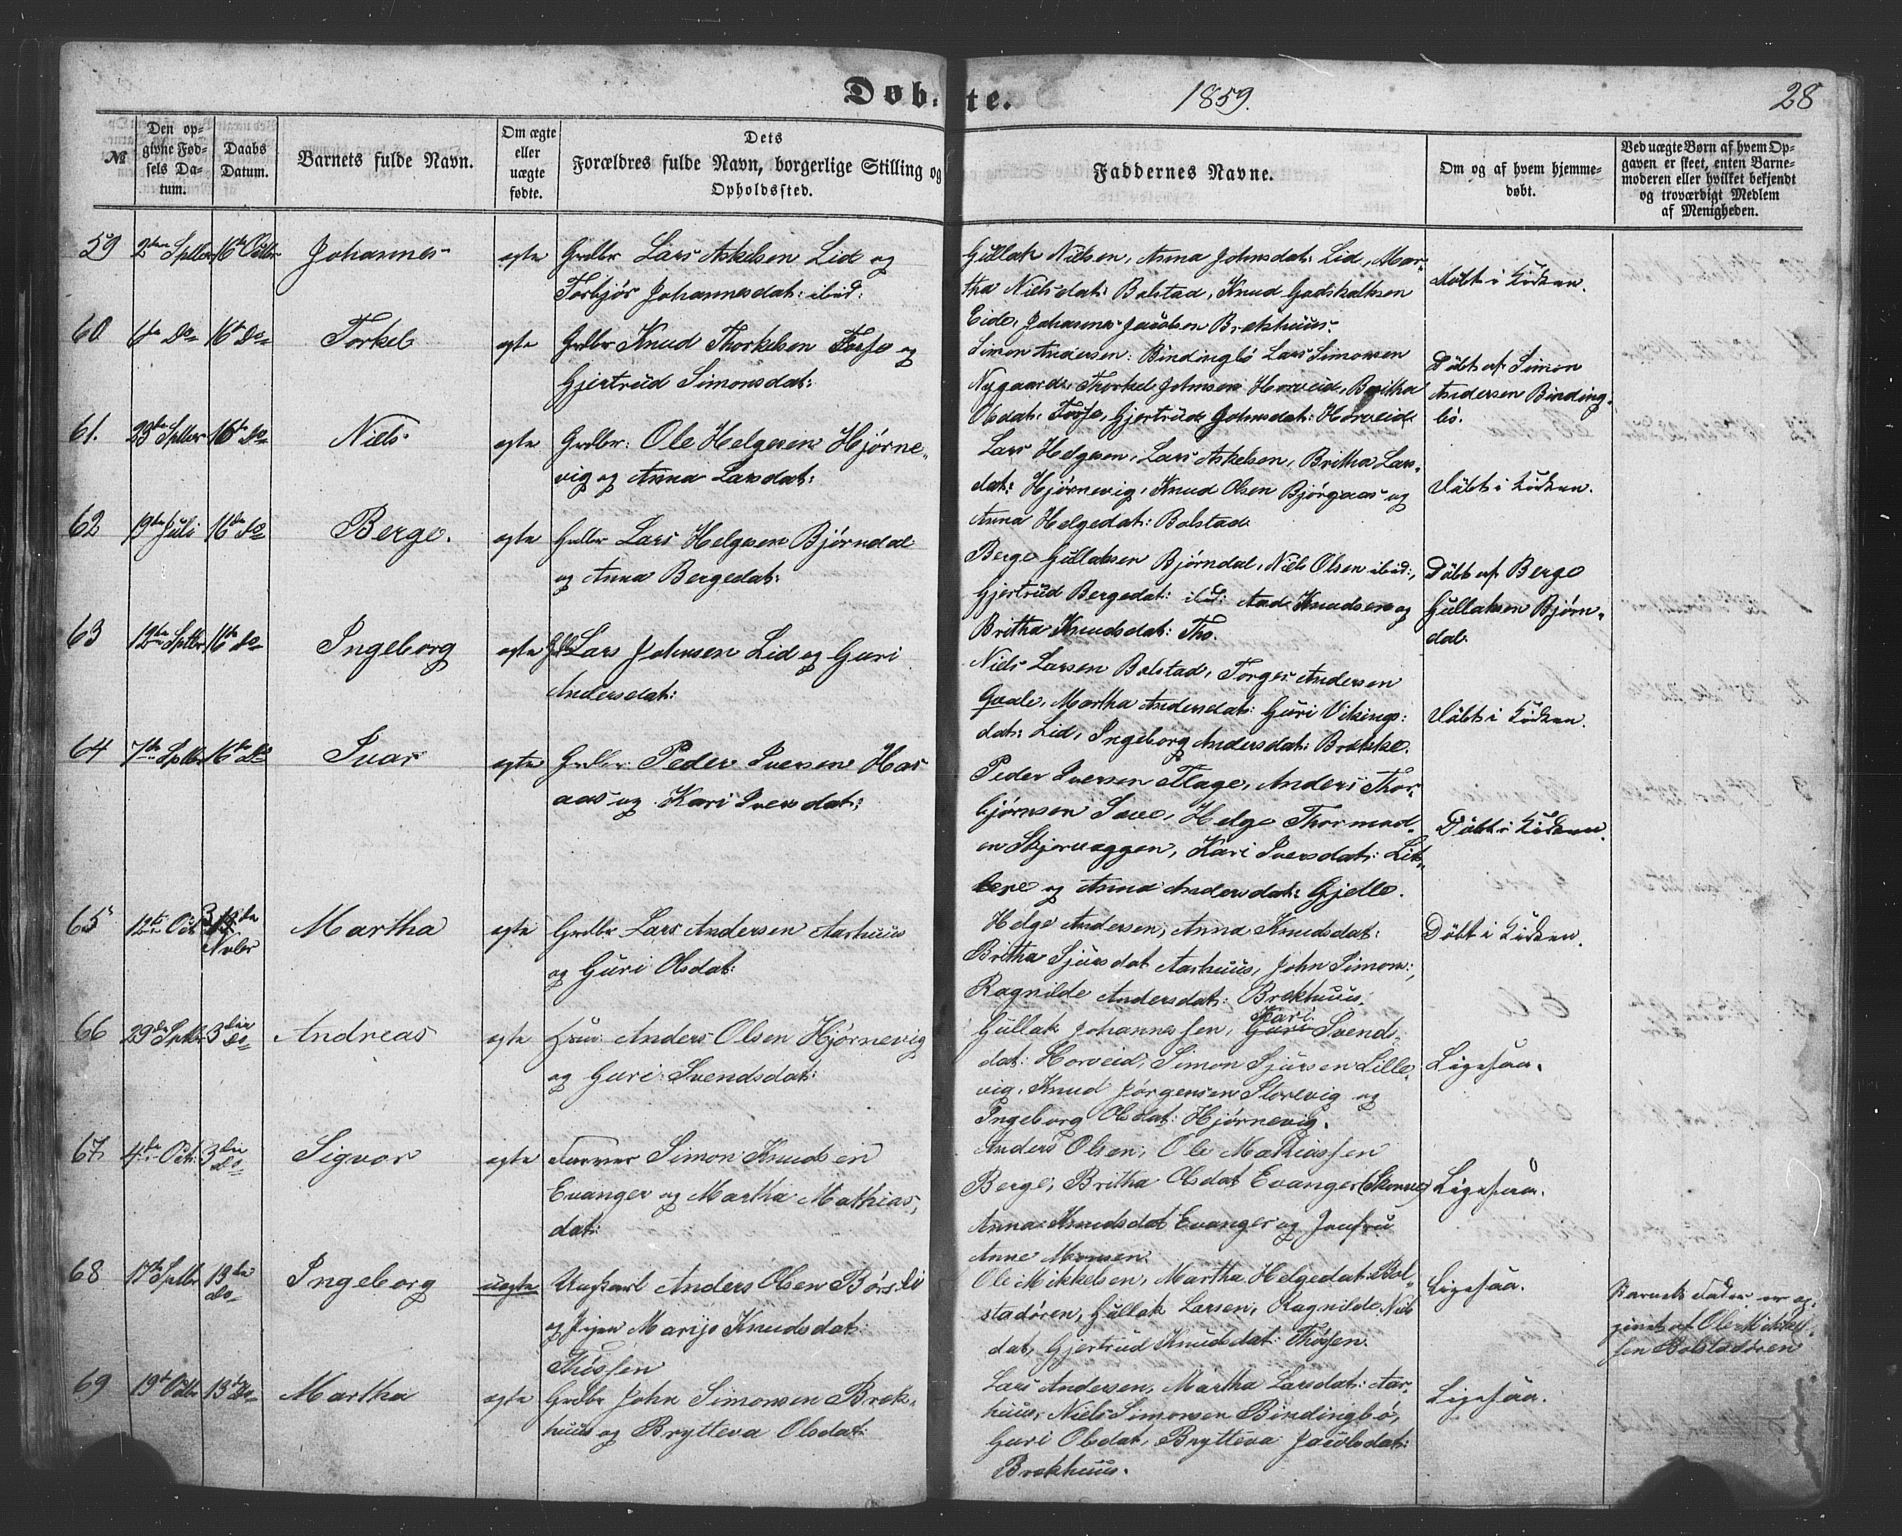 Døbte. 1859. 28
№
Den opgivne Fødsels Datum.
Daabs Datum.
Barnets fulde Navn.
Om ægte eller uægte fødte.
Dets Forældres fulde Navn, borgerlige Stilling og Opholdssted.
Faddernes Navne.
Om og af hvem hjemmedøbt.
Ved uægte Børn af hvem Opgaven er skeet, enten Barnemoderen eller hvilket bekjendt og troværdigt Medlem af Menigheden.
59 2den Sptbr 16de Octbr Johannes ægte Grdbr Lars Askelsen Lid og
Torbjør Johannesdat: ibid:
Gullak Nielsen, Anna Johnsdat: Lid, Mar-
tha Nielsdat: Bolstad, Knud Godskalksen
Eide, Johannes Jacobsen Brekhuus.
Døbt i Kirken.
60 6te Do 16de Do Torkel ægte Grdbr Knud Thorkelsen Fosse og
Gjertrud Simonsdat:
Simon Andersen: Bindingbø Lars Simonsen
Nygaard, Thorkel Johnsen Horveid, Britha
Olsdat: Fosse, Gjertrud Johnsdat: Horveid
Døbt af Simon
Andersen Binding-
bø.
61. 23de Sptbr 16de Do Niels ægte Grdbr: Ole Helgesen Hjørne-
vig og Anna Larsdat:
Lars Helgesen, Lars Askelsen, Britha Lars-
dat: Hjørnevig, Knud Olsen Bjørgaas og
Anna Helgedat: Bolstad
Døbt i Kirken.
62 19de Juli 16de Do Berge. ægte Grdbr Lars Helgesen Bjørndal
og Anna Bergedat:
Berge Gullaksen Bjørndal, Niels Olsen ibid:,
Gjertrud Bergedat: ibid: Aad Knudsen og
Britha Knudsdat: Tho.
Døbt af Berge
Gullaksen Bjørn-
dal.
63 12te Sptbr 16de Do Ingeborg ægte Grdbr Lars Johnsen Lid og Guri
Andersdat:
Niels Larsen Bolstad, Torger Andersen
Qvale, Martha Andersdat: Guri Vikings:
dat: Lid, Ingeborg Andersdat: Brekke.
Døbt i Kirken.
64 7de Sptbr 16de Do Ivar ægte Grdbr: Peder Iversen Hor
aas og Kari Iversdat:
Peder Iversen Flage, Anders Thor-
bjørnsen Saue, Helge Thormod-
en Skjervaggen, Kari Iversdat:
og Anna Andersdat: Gjelle.
Døbt i Kirken.
65 12te Oct 3die Nvbr Martha ægte Grdbr Lars Andersen Aarhuus
og Guri Olsdat:
Helge Andersen, Anna Knudsdat:
Britha Sjursdat Aarhuus, John Simons:,
Ragnilde Andersdat: Brekhuus.
Døbt i Kirken.
66 29de Sptbr 3die Do Andreas ægte Huus: Anders Olsen Hjørnevig
og Guri Svendsdat:
Gullak Johannessen, Kari Svends-
dat: Horveid, Simon Sjursen Lille-
vig, Knud Jørgensen Storevig og
Ingeborg Olsdat: Hjørnevig.
Ligesaa.
67 4de Oct: 3die Do Sigvor ægte Farver Simon Knudsen
Evanger og Martha Mathias,
dat:
Anders Olsen, Ole Mathiassen
Berge, Britha Olsdat Evanger (Skorve)
Anna Knudsdat Evanger og Jomfru
Anne Monsen.
Ligesaa.
68 17de Sptbr 13de Do Ingeborg uægte Ungkarl Anders Olsen Børsli
og Pigen Marije Knudsdat:
Thøssen
Ole Mikkelsen, Martha Helgedat: Bol-
stadøren, Gullak Larsen, Ragnilde Niels
dat, Gjertrud Knudsdat: Thøssen.
Ligesaa.
Barnets Fader er op-
givet af Ole Mikkel-
sen Bolstadøren
69 19de Octbr 13de Do Martha ægte Grdbr John Simonsen Brek-
huus og Brytteva Olsdat:
Lars Andersen, Martha Larsdat: Aar-
huus, Niels Simonsen Bindingbø,
Guri Olsdat, Brytteva Jacobsdat:
Brekhuus.
Ligesaa.